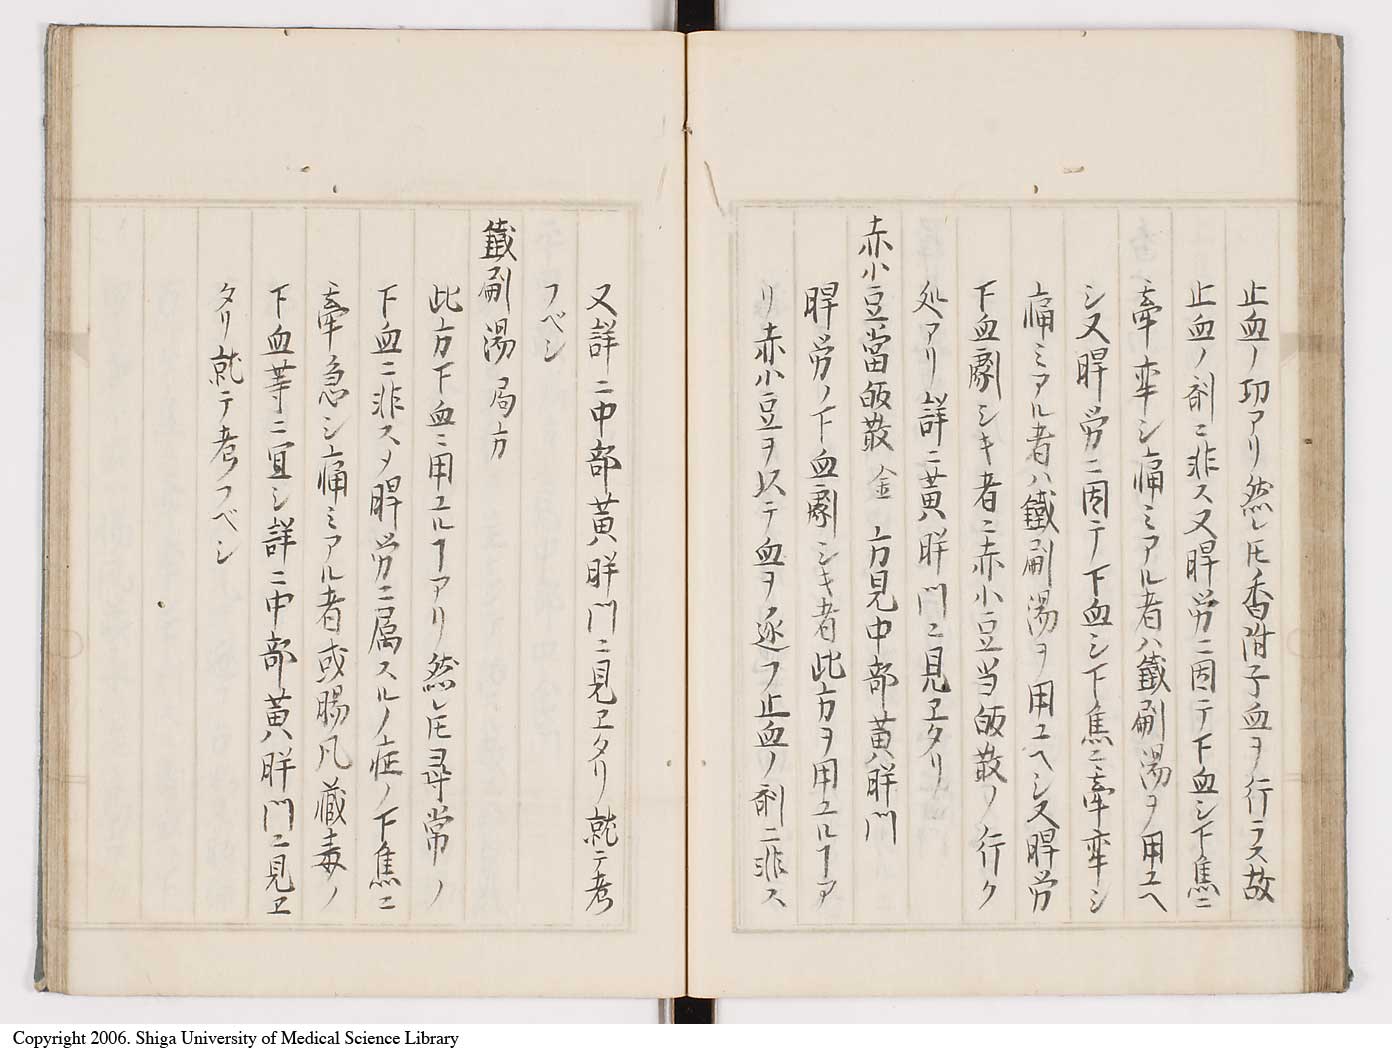 止血ノ功アリ然レ𪜈香附子血ヲ行ラス故
止血ノ剤ニ非ス又脾労ニ因テ下血シ下焦ニ
牽牽シ痛ミアル者ハ鐵刷湯ヲ用ユヘ
シ又脾労ニ因テ下血シ下焦ニ牽牽シ
痛ミアル者ハ鐵刷湯ヲ用ユヘシ又脾労
下血劇シキ者ニ赤小豆当皈散ノ行ク
処アリ詳ニ黄胖門ニ見ヱタリ
赤小豆當皈散 金 方見中部黄胖門
脾労ノ下血劇シキ者此方ヲ用ユルヿア
リ赤小豆ヲ以テ血ヲ逐フ止血ノ剤ニ非ス
又詳ニ中部黄胖門ニ見ヱタリ就テ考
フベシ
鐵刷湯 局方
此方下血ニ用ユルヿアリ然レ𪜈尋常ノ
下血ニ非ス脾労ニ属スルノ症ノ下焦ニ
牽急シ痛ミアル者或腸風藏毒ノ
下血等ニ宜シ詳ニ中部黄胖門ニ見ヱ
タリ就テ考フベシ
Copyright 2006. Shiga University of Medical Science Library